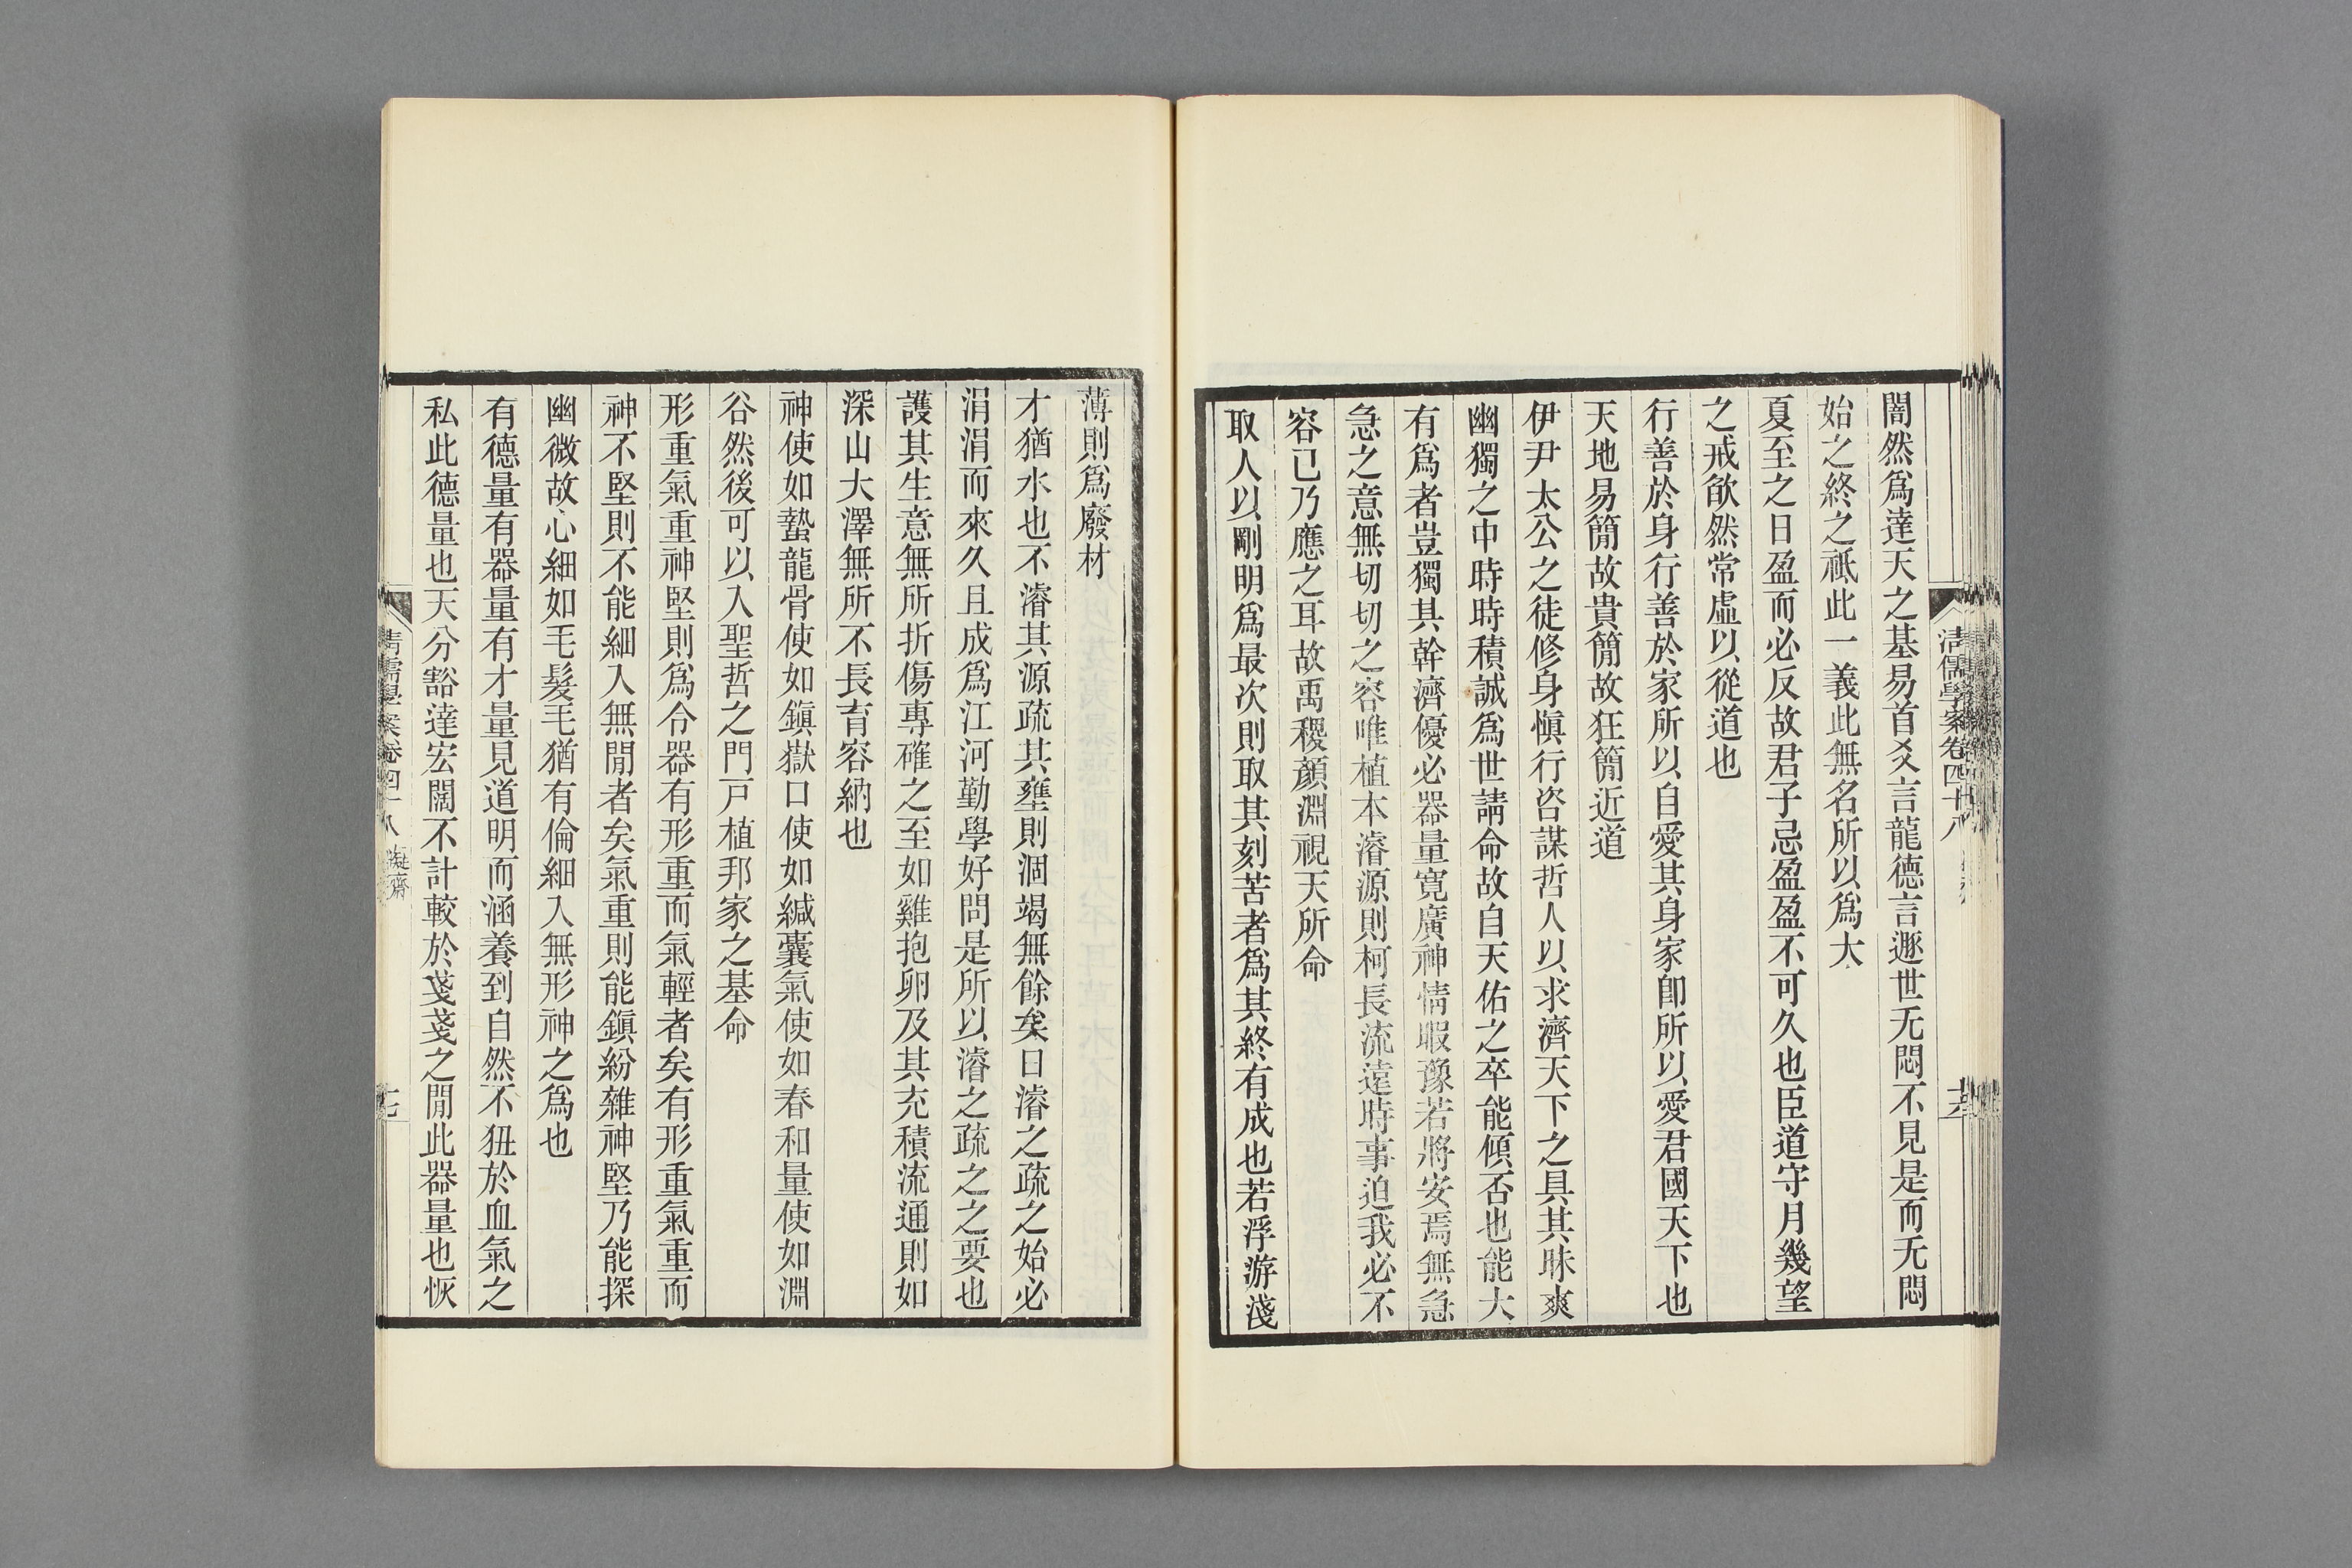 清儒學案卷四十八
闇然爲達天之基易首爻言龍德言遯世无悶不見是而无悶
始之終之祗此一義此無名所以爲大
夏至之日盈而必反故君子忌盈盈不可久也臣道守月幾望
之戒欿然常虛以從道也
行善於身行善於家所以自愛其身家卽所以愛君國天下也
天地易簡故貴簡故狂簡近道
伊尹太公之徒修身愼行咨謀哲人以求濟天下之具其昧爽
幽獨之中時時積誠爲世請命故自天佑之卒能傾否也能大
有爲者豈獨其幹濟優必器量寬廣神情暇豫若將安焉無急
急之意無切切之容唯植本濬源則柯長流遠時事迫我必不
容已乃應之耳故禹稷顏淵視天所命
取人以剛明爲最次則取其刻苦者爲其終有成也若浮游淺
薄則爲廢材
才猶水也不濬其源疏其壅則涸竭無餘矣日濬之疏之始必
涓涓而來久且成爲江河勤學好問是所以濬之疏之之要也
護其生意無所折傷專確之至如雞抱卵及其充積流通則如
深山大澤無所不長育容納也
神使如蟄龍骨使如鎭嶽口使如緘囊氣使如春和量使如淵
谷然後可以入聖哲之門戸植邦家之基命
形重氣重神堅則爲令器有形重而氣輕者矣有形重氣重而
神不堅則不能細入無閒者矣氣重則能鎭紛雜神堅乃能探
幽微故心細如毛髮毛猶有倫細入無形神之爲也
有德量有器量有才量見道明而涵養到自然不狃於血氣之
私此德量也天分豁達宏闊不計較於戔戔之閒此器量也恢
清儒學案卷四十八 凝齋
十七